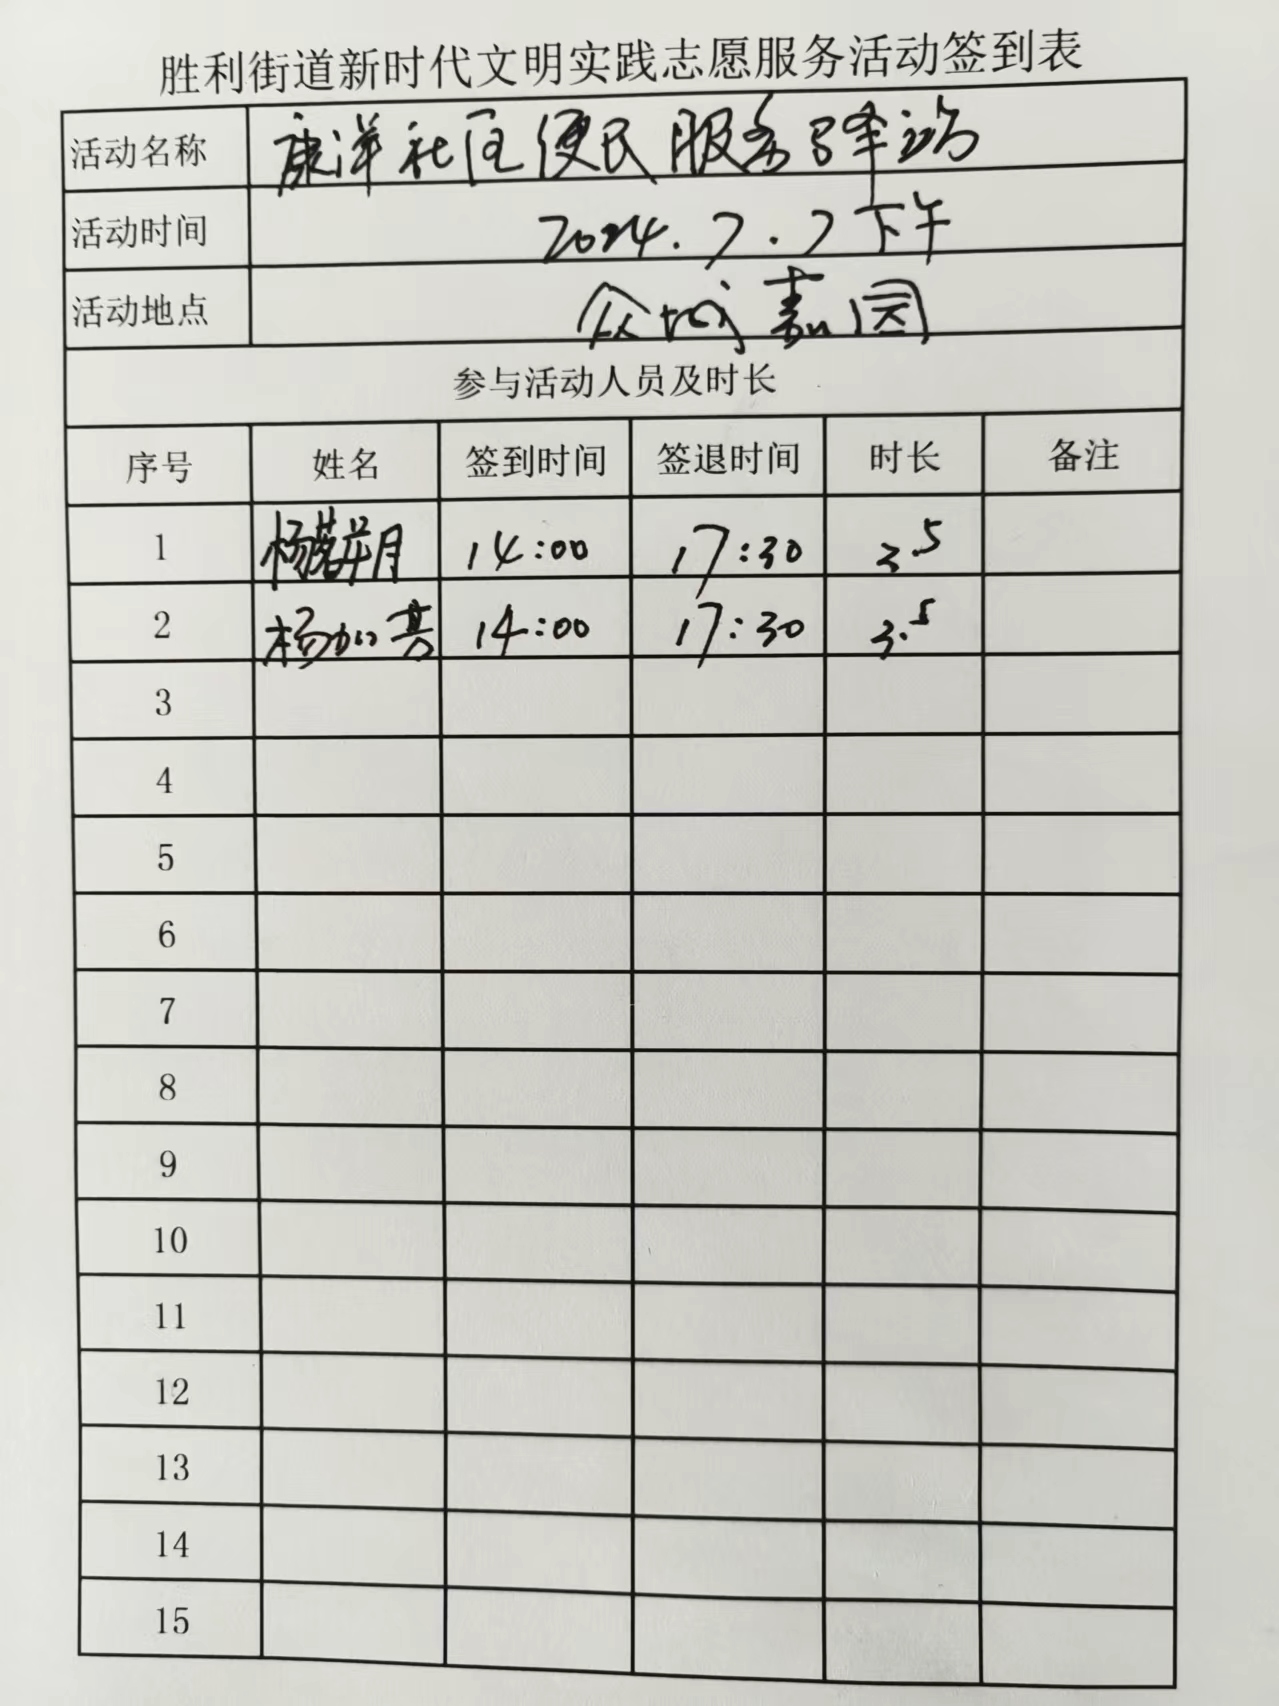 胜利街道新时代文明实践志愿服务活动签到表
活动名称 康洋社区便民服务驿站
活动时间 2024.7.7下午
活动地点 众城嘉园
参与活动人员及时长
序号 姓名 签到时间 签退时间 时长 备注
1 杨 月 14:00 17:30 3.5
2 杨加 14:00 17:30 3.5
3
4
5
6
7
8
9
10
11
12
13
14
15